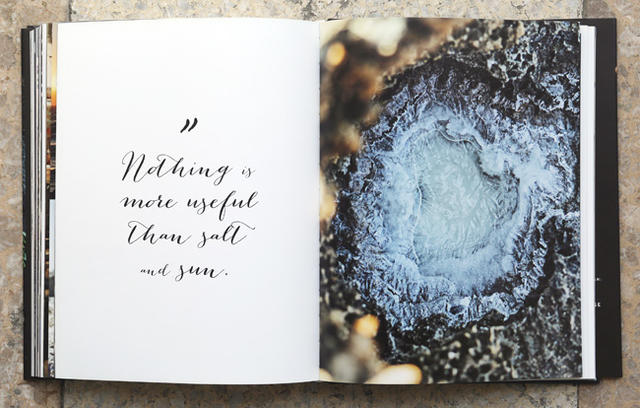 ”
Nothing is
more useful
than salt
and sun.